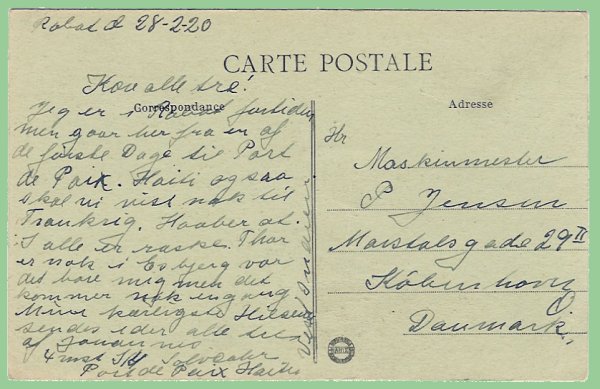 Rabat d 28-2-20
CARTE POSTALE
Kære alle tre!
Correspondance
Jeg er i Rabat fortiden
men gaar her fra en af
de første Dage til Port
de Paix. Haiti ogsaa
skal vi vist nok til
Frankrig. Haaber at
I alle er raske. Thor
er nok i Esbjerg var
det bare mig men det
kommer nok engang
Mine kærligste Hilsener
sendes i der alle tre
af Johannes
4 mst S/S
Port de Paix Haiti
Vest Indien
Adresse
Hr
Maskinmester
P Jensen
Marstalsgade 29 II
København Ø
Danmark.